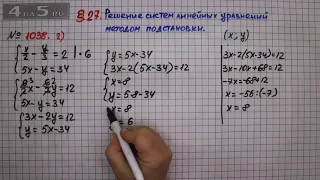 §27. Решение систем линейных уравнений
методом подстановки.
№ 1038. 2)
x/2 - y/3 = 2 | · 6
5x - y = 34
5x - y = 34
3x - 2y = 12
y = 5x - 34
y = 5x - 34
3x - 2(5x - 34) = 12
x = 8
y = 5·8 - 34
x = 8
= 6
(x; y)
3x - 2(5x - 34) = 12
3x - 10x + 68 = 12
-7x = -68 + 12
x = -56 : (-7)
x = 8